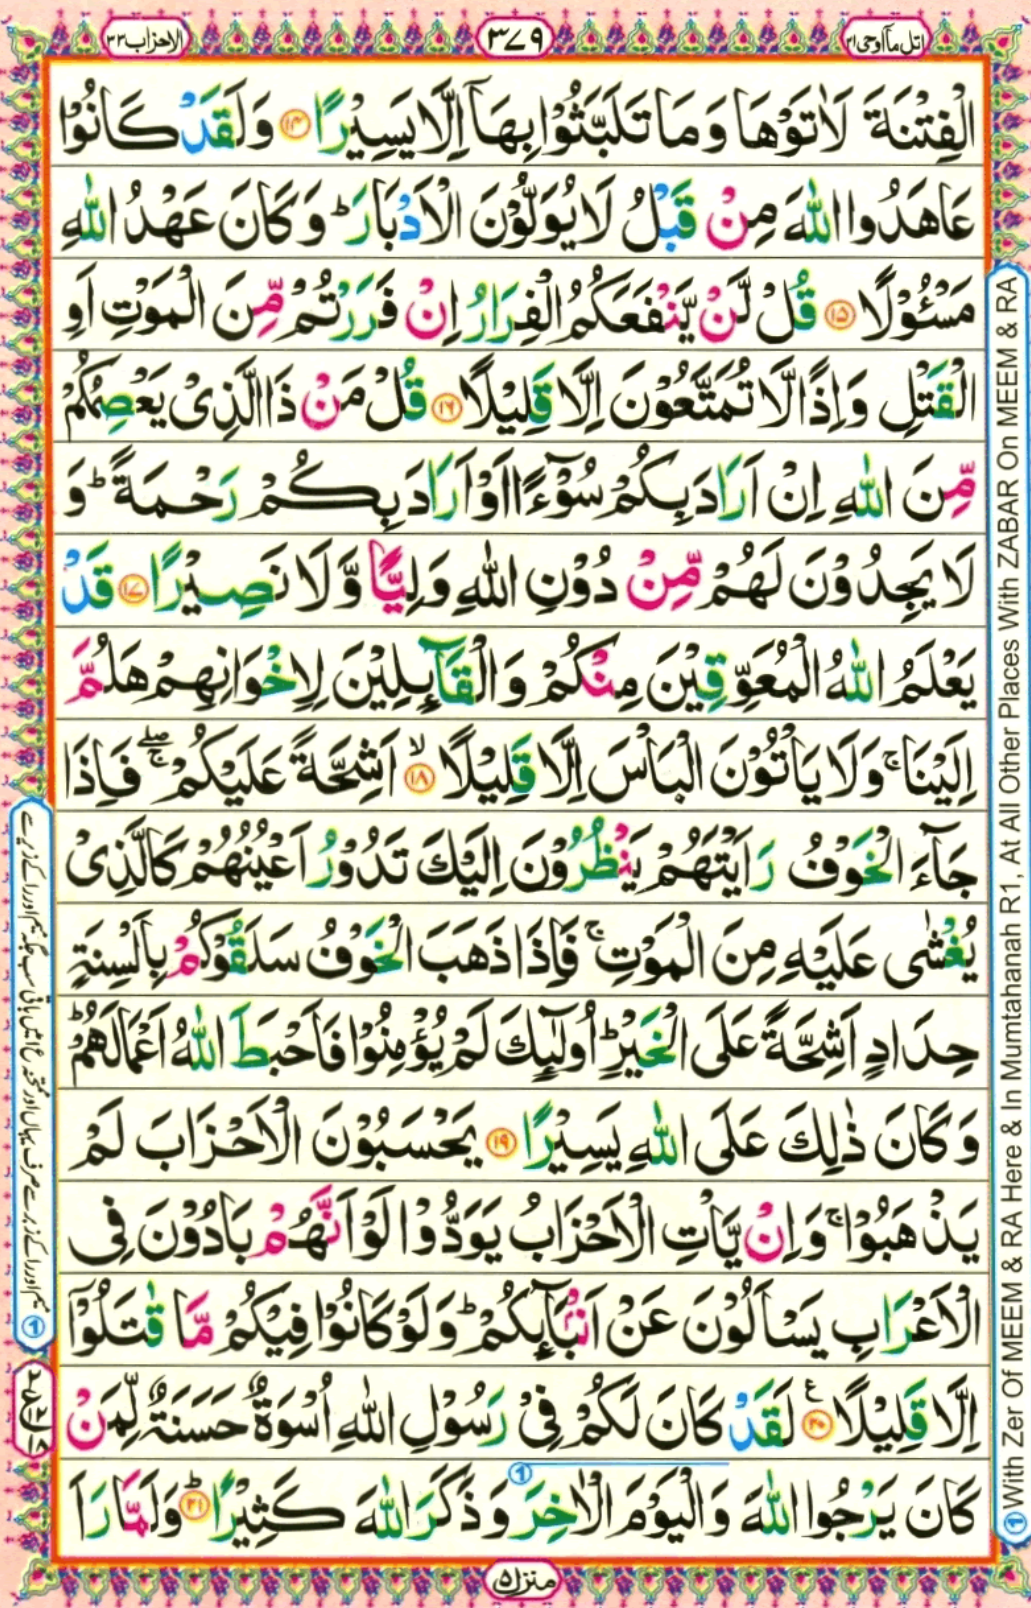 اتل ما اوحی ۲۱
۳۷۹
الاحزاب ۳۳
الْفِتْنَةَ لَاٰتَوْهَا وَمَا تَلَبَّثُوْا بِهَاۤ اِلَّا يَسِيْرًا ۝۱۴ وَلَقَدْ كَانُوْا
عَاهَدُوا اللّٰهَ مِنْ قَبْلُ لَا يُوَلُّوْنَ الْاَدْبَارَ ؕ وَكَانَ عَهْدُ اللّٰهِ
مَسْـُٔوْلًا ۝۱۵ قُلْ لَّنْ يَّنْفَعَكُمُ الْفِرَارُ اِنْ فَرَرْتُمْ مِّنَ الْمَوْتِ اَوِ
الْقَتْلِ وَاِذًا لَّا تُمَتَّعُوْنَ اِلَّا قَلِيْلًا ۝۱۶ قُلْ مَنْ ذَا الَّذِىْ يَعْصِمُكُمْ
مِّنَ اللّٰهِ اِنْ اَرَادَ بِكُمْ سُوْٓءًا اَوْ اَرَادَ بِكُمْ رَحْمَةً ؕ وَ
لَا يَجِدُوْنَ لَهُمْ مِّنْ دُوْنِ اللّٰهِ وَلِيًّا وَّلَا نَصِيْرًا ۝۱۷ قَدْ
يَعْلَمُ اللّٰهُ الْمُعَوِّقِيْنَ مِنْكُمْ وَالْقَآئِلِيْنَ لِاِخْوَانِهِمْ هَلُمَّ
اِلَيْنَا ۚ وَلَا يَاْتُوْنَ الْبَاْسَ اِلَّا قَلِيْلًا ۙ ۝۱۸ اَشِحَّةً عَلَيْكُمْ ۖۚ فَاِذَا
جَآءَ الْخَوْفُ رَاَيْتَهُمْ يَنْظُرُوْنَ اِلَيْكَ تَدُوْرُ اَعْيُنُهُمْ كَالَّذِىْ
يُغْشٰى عَلَيْهِ مِنَ الْمَوْتِ ۚ فَاِذَا ذَهَبَ الْخَوْفُ سَلَقُوْكُمْ بِاَلْسِنَةٍ
حِدَادٍ اَشِحَّةً عَلَى الْخَيْرِ ؕ اُولٰٓئِكَ لَمْ يُؤْمِنُوْا فَاَحْبَطَ اللّٰهُ اَعْمَالَهُمْ ؕ
وَكَانَ ذٰلِكَ عَلَى اللّٰهِ يَسِيْرًا ۝۱۹ يَحْسَبُوْنَ الْاَحْزَابَ لَمْ
يَذْهَبُوْا ۚ وَاِنْ يَّاْتِ الْاَحْزَابُ يَوَدُّوْا لَوْ اَنَّهُمْ بَادُوْنَ فِى
الْاَعْرَابِ يَسْاَلُوْنَ عَنْ اَنْۢبَآئِكُمْ ؕ وَلَوْ كَانُوْا فِيْكُمْ مَّا قٰتَلُوْۤا
اِلَّا قَلِيْلًا ۝۲۰ ع لَقَدْ كَانَ لَكُمْ فِىْ رَسُوْلِ اللّٰهِ اُسْوَةٌ حَسَنَةٌ لِّمَنْ
كَانَ يَرْجُوا اللّٰهَ وَالْيَوْمَ الْاٰخِرَ وَذَكَرَ اللّٰهَ كَثِيْرًا ؕ ۝۲۱ وَلَمَّا رَاَ
منزل ۵
① With Zer Of MEEM & RA Here & In Mumtahanah R1, At All Other Places With ZABAR On MEEM & RA
①